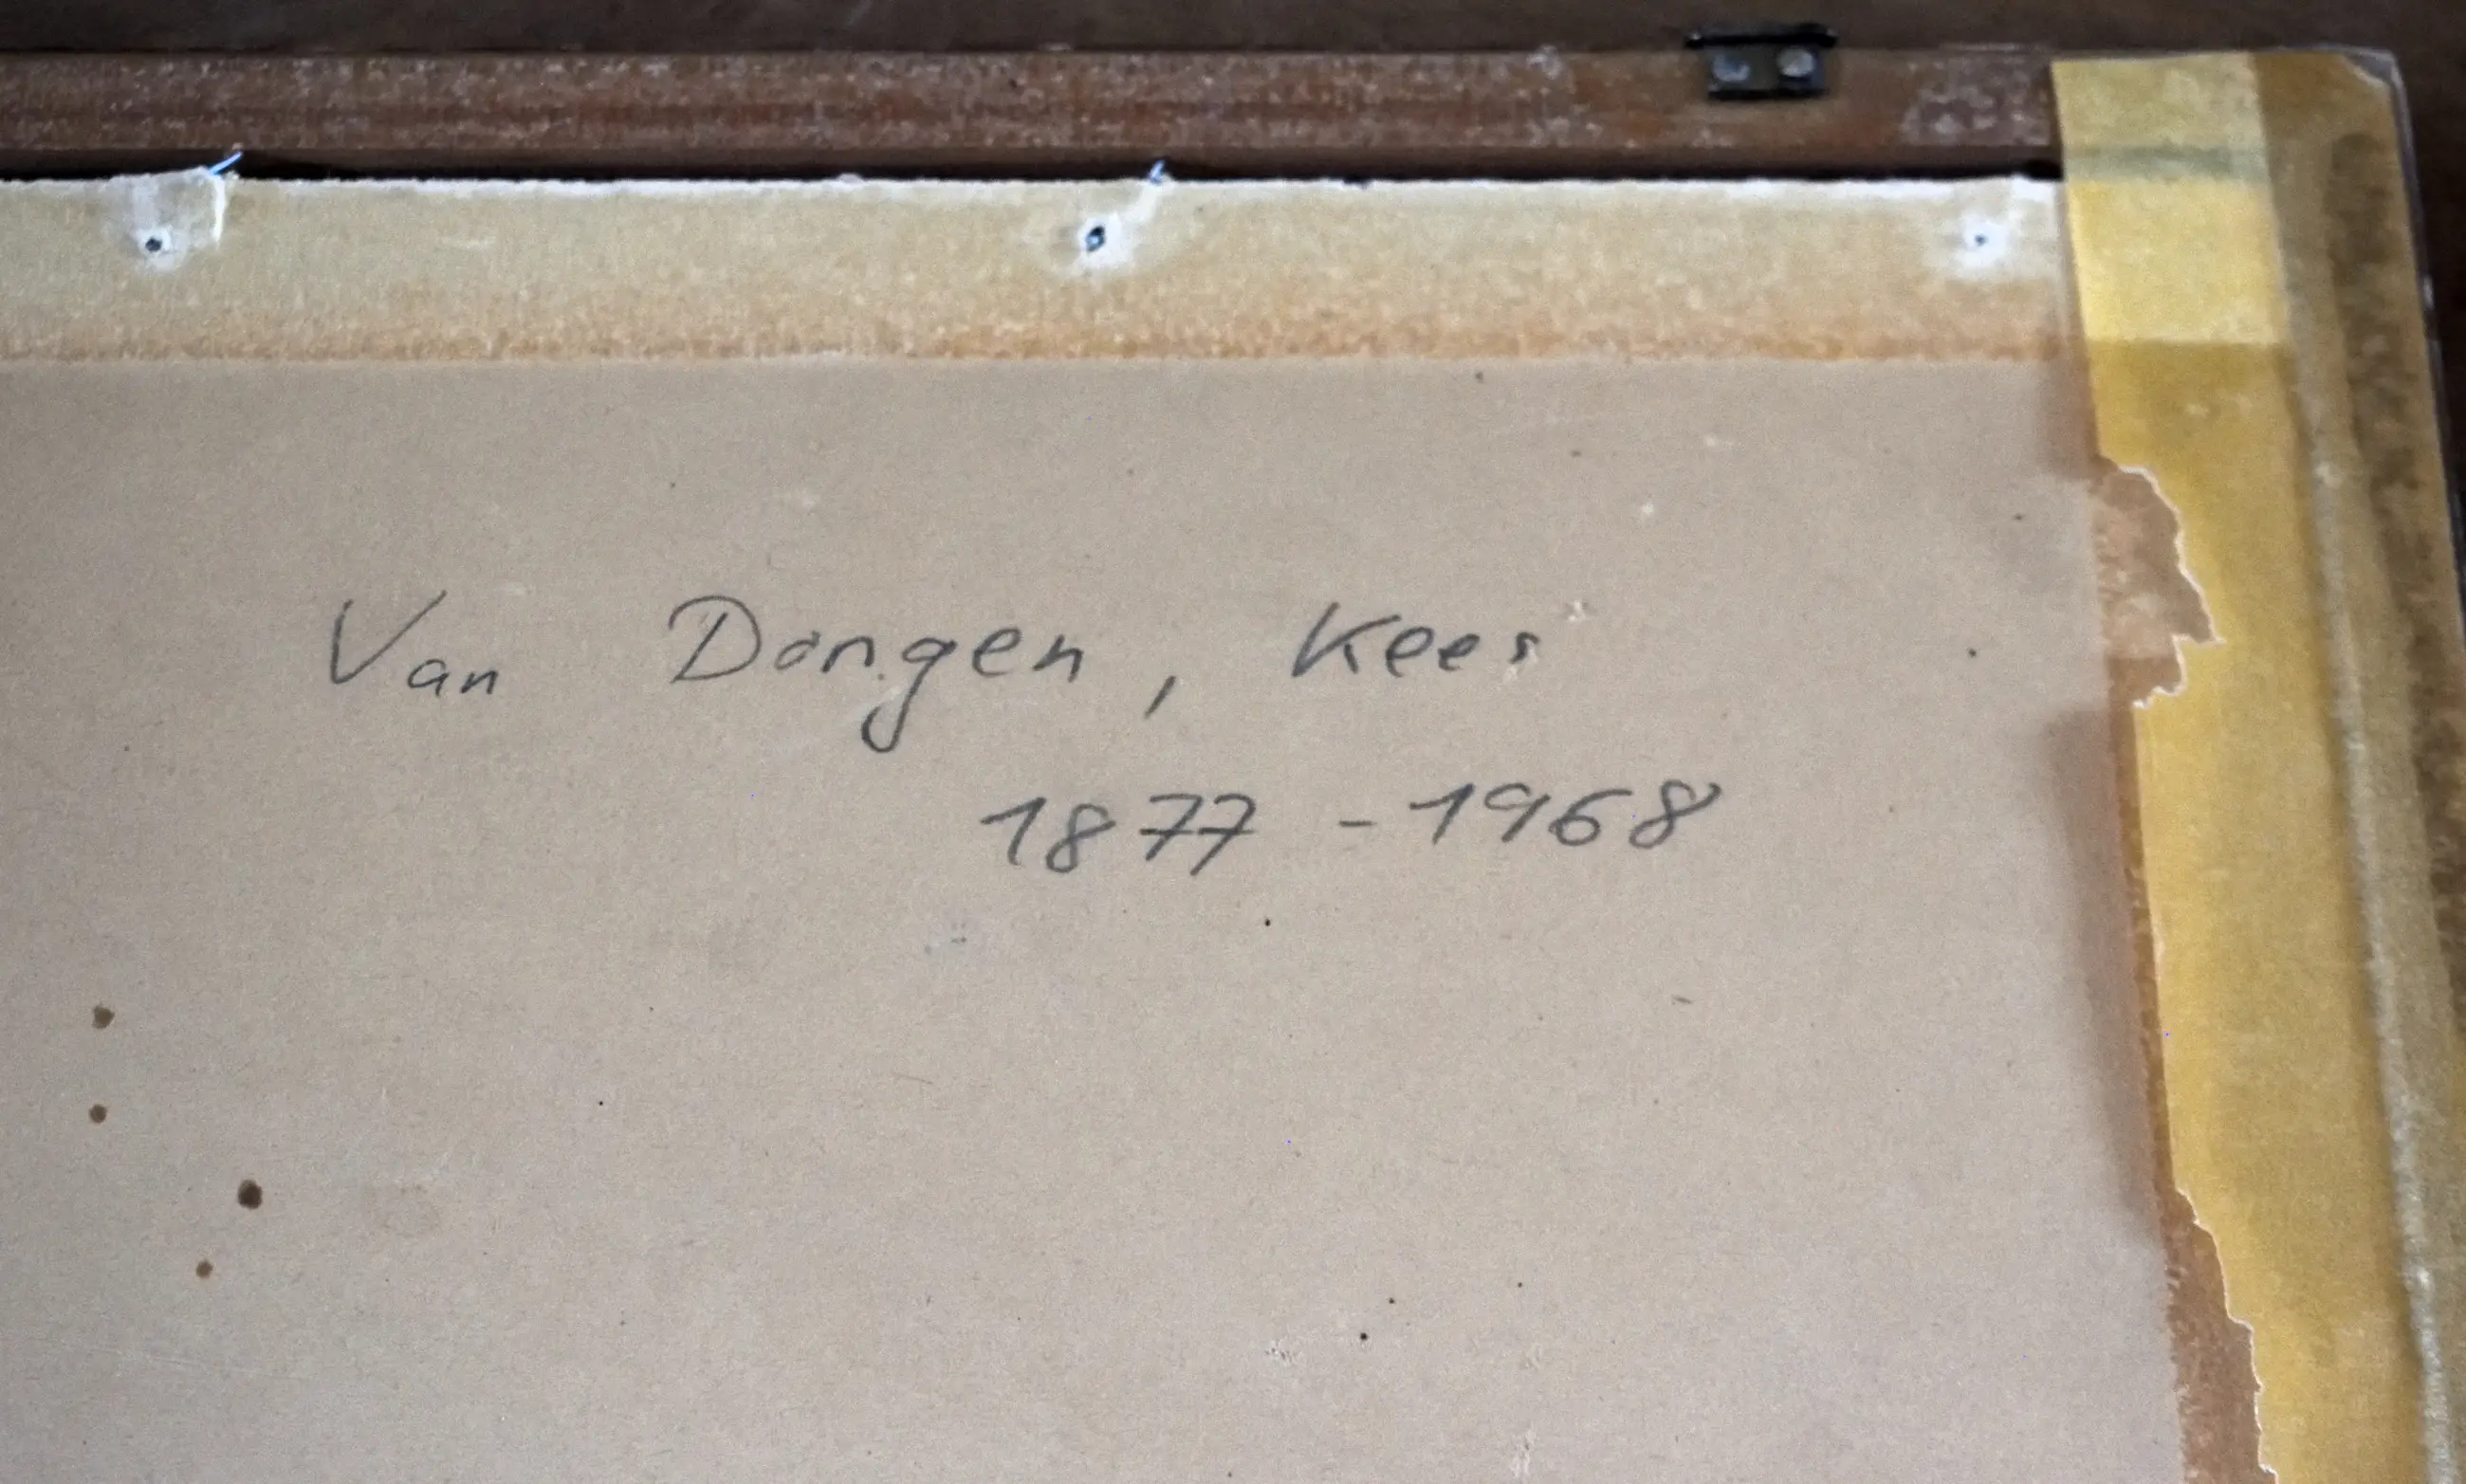 Van Dongen, Kees
1877 - 1968